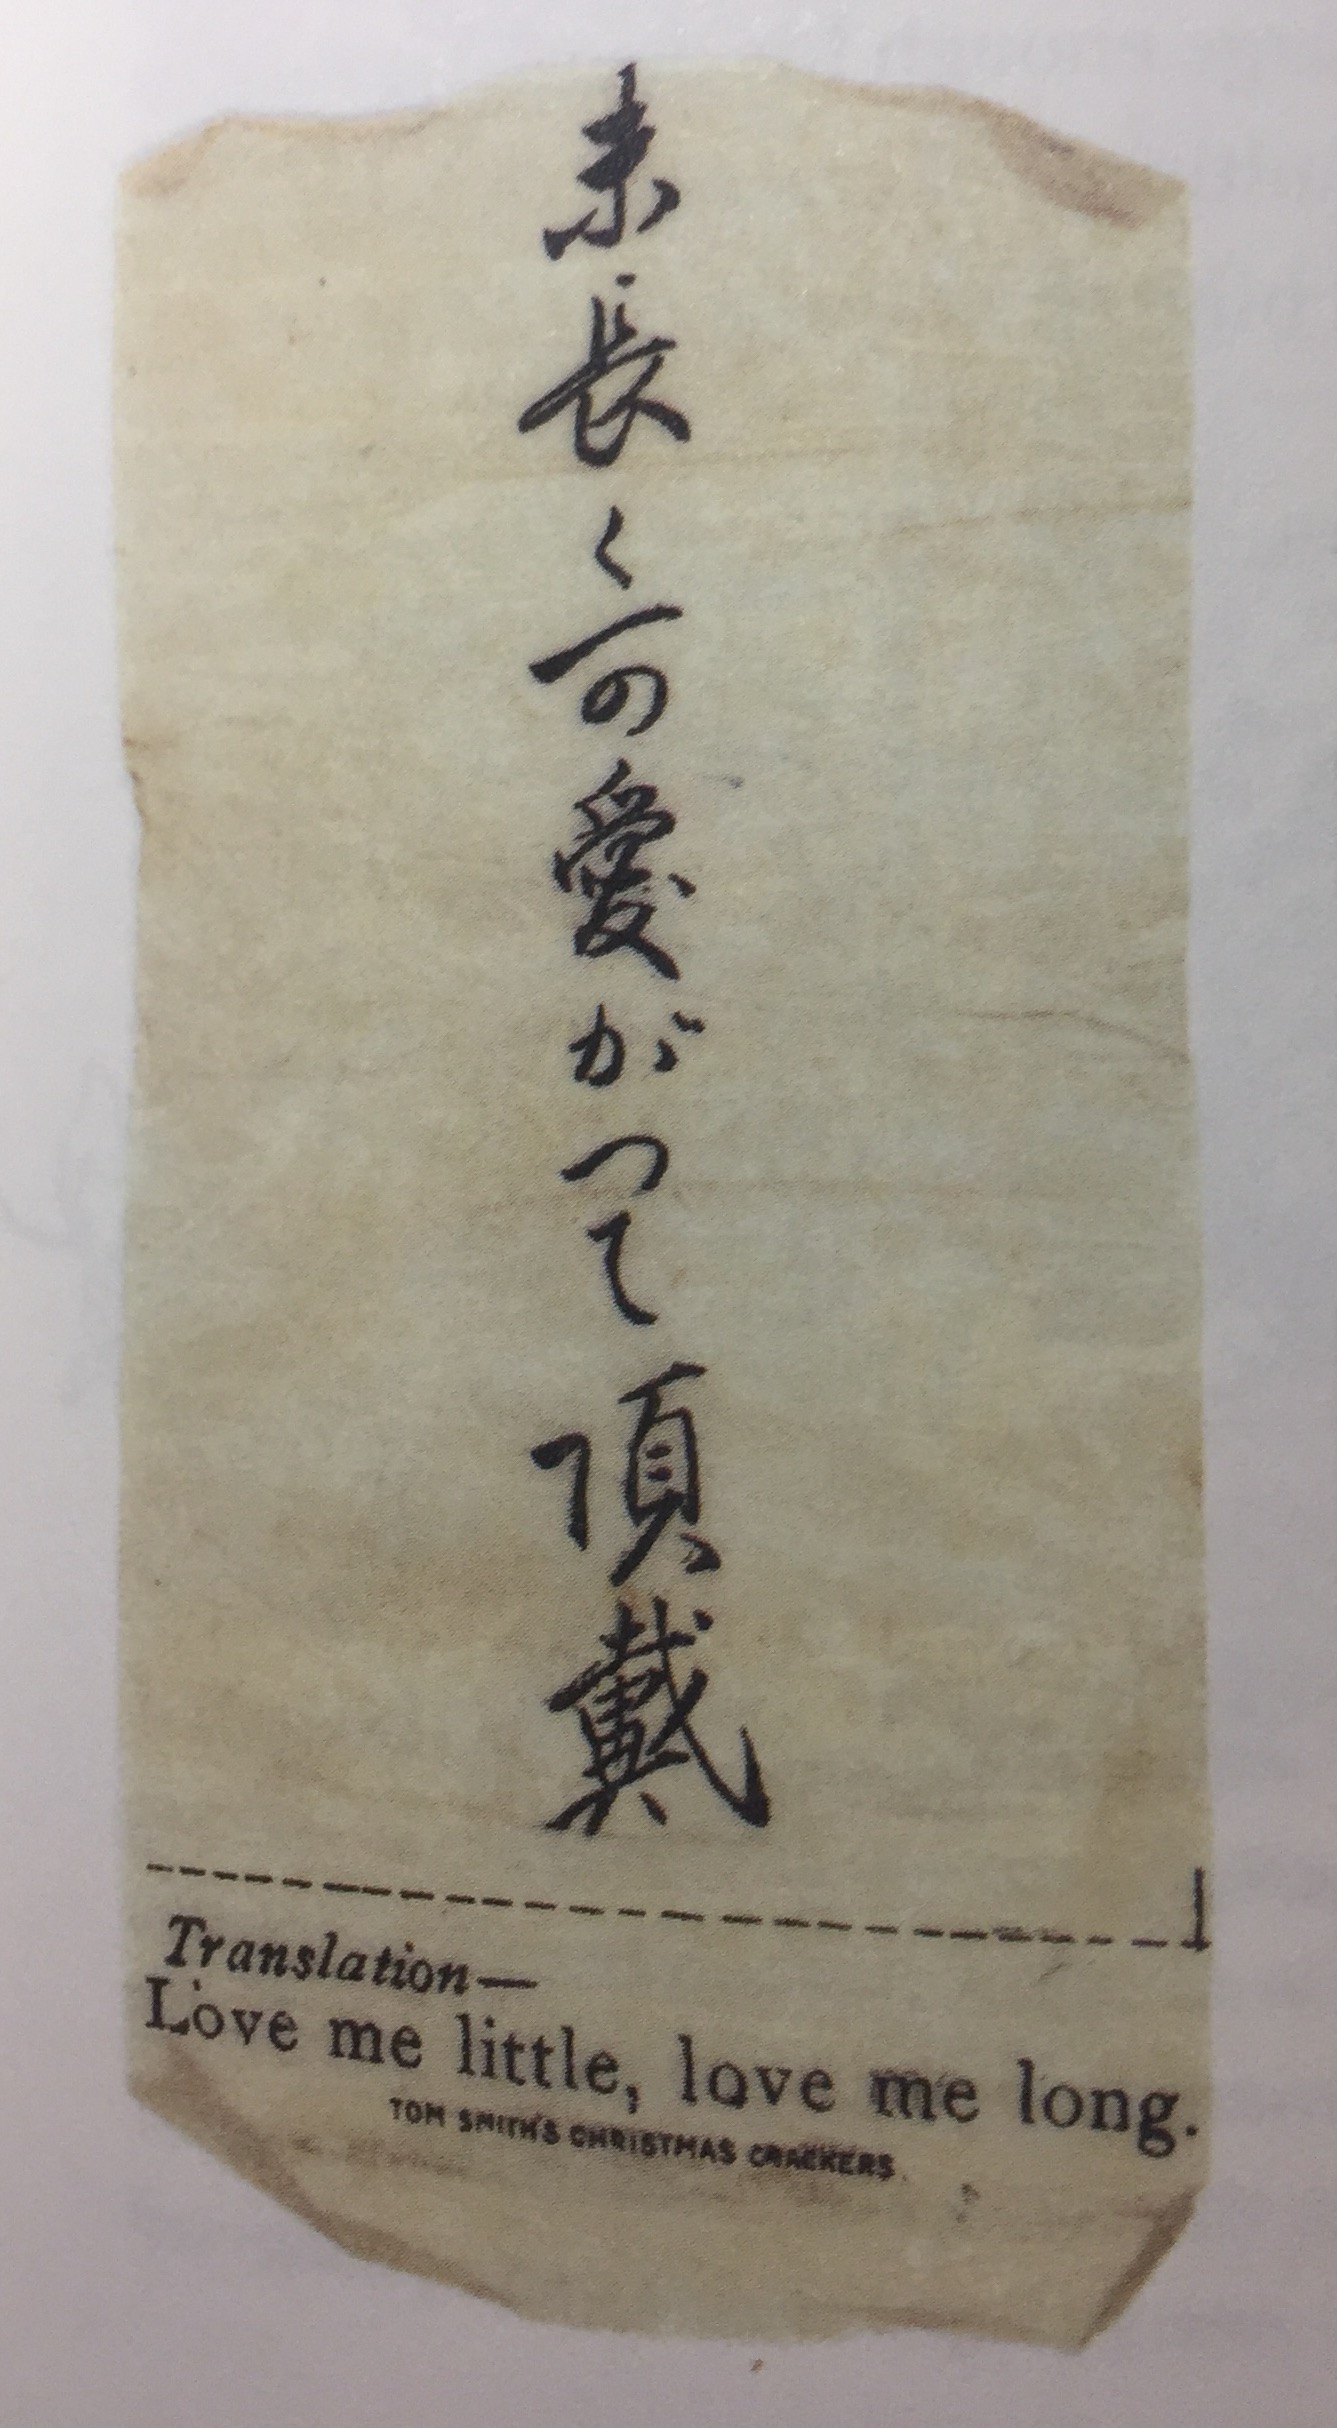 末長く可愛がつて頂戴
Translation—
Love me little, love me long.
TOM SMITH'S CHRISTMAS CRACKERS.